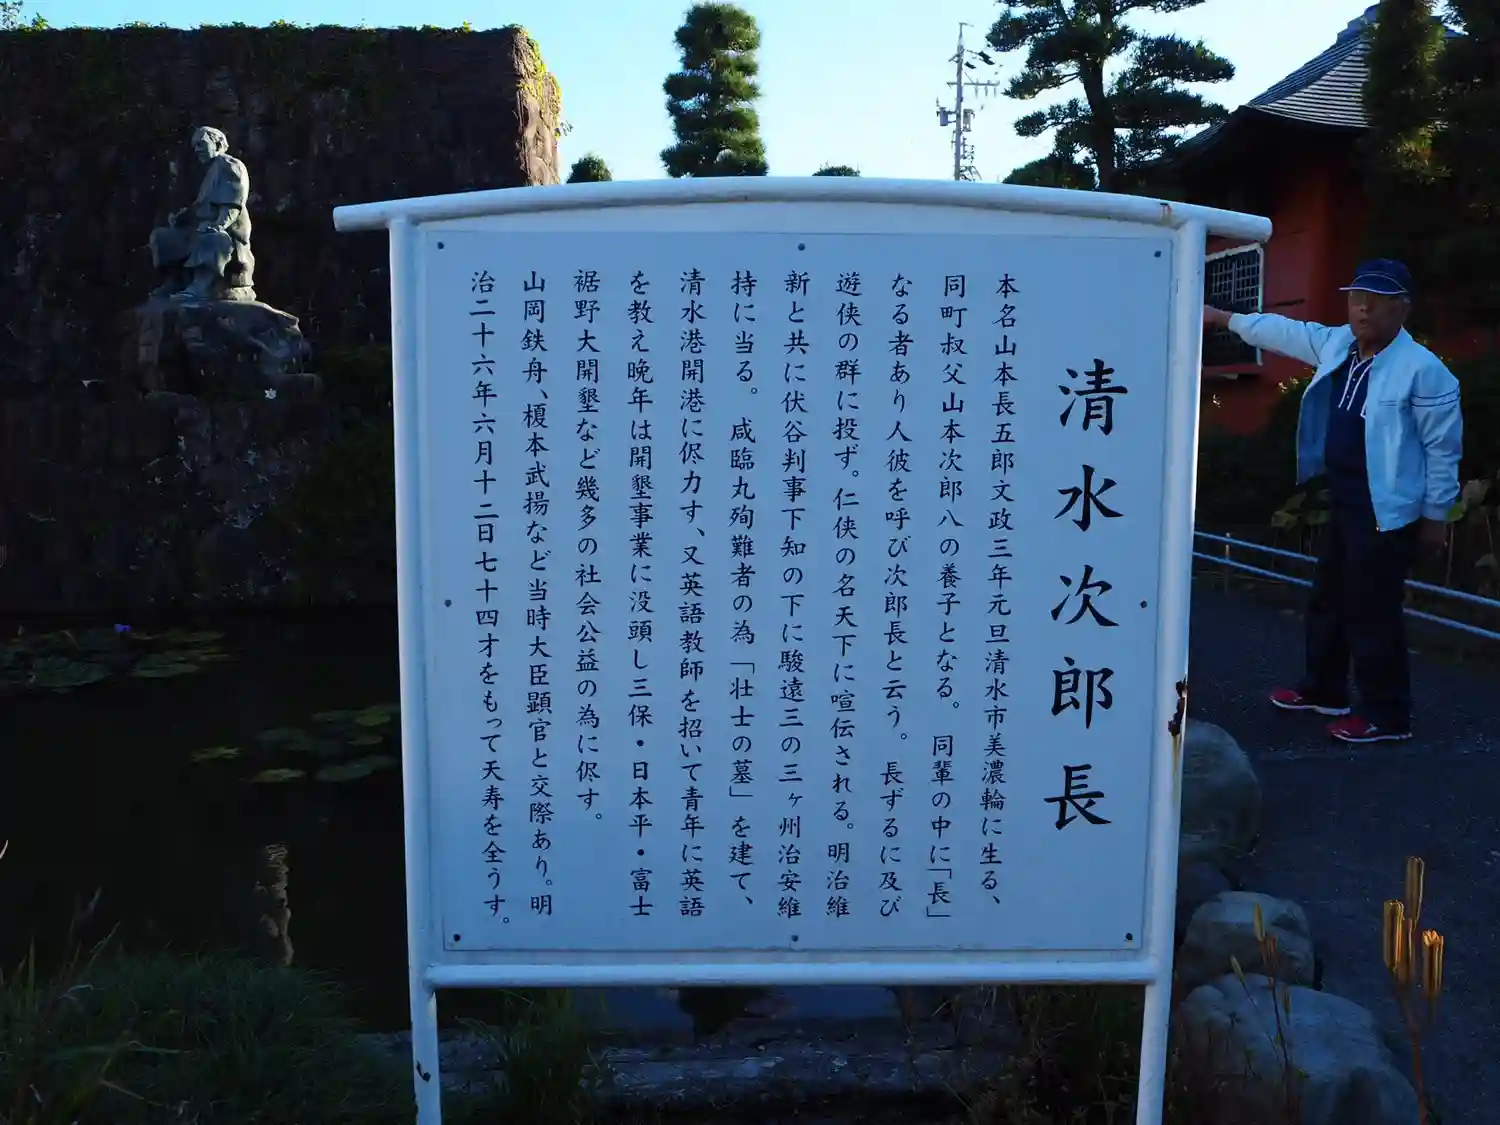 清水次郎長
本名山本長五郎文政三年元旦清水市美濃輪に生る、
同町叔父山本次郎八の養子となる。同輩の中に「長」
なる者あり人彼を呼び次郎長と云う。長ずるに及び
遊侠の群に投ず。仁侠の名天下に喧伝される。明治維
新と共に伏谷判事下知の下に駿遠三の三ヶ州治安維
持に当る。咸臨丸殉難者の為「壮士の墓」を建て、
清水港開港に侭力す、又英語教師を招いて青年に英語
を教え晩年は開墾事業に没頭し三保・日本平・富士
裾野大開墾など幾多の社会公益の為に侭す。
山岡鉄舟、榎本武揚など当時大臣顕官と交際あり。明
治二十六年六月十二日七十四才をもって天寿を全うす。